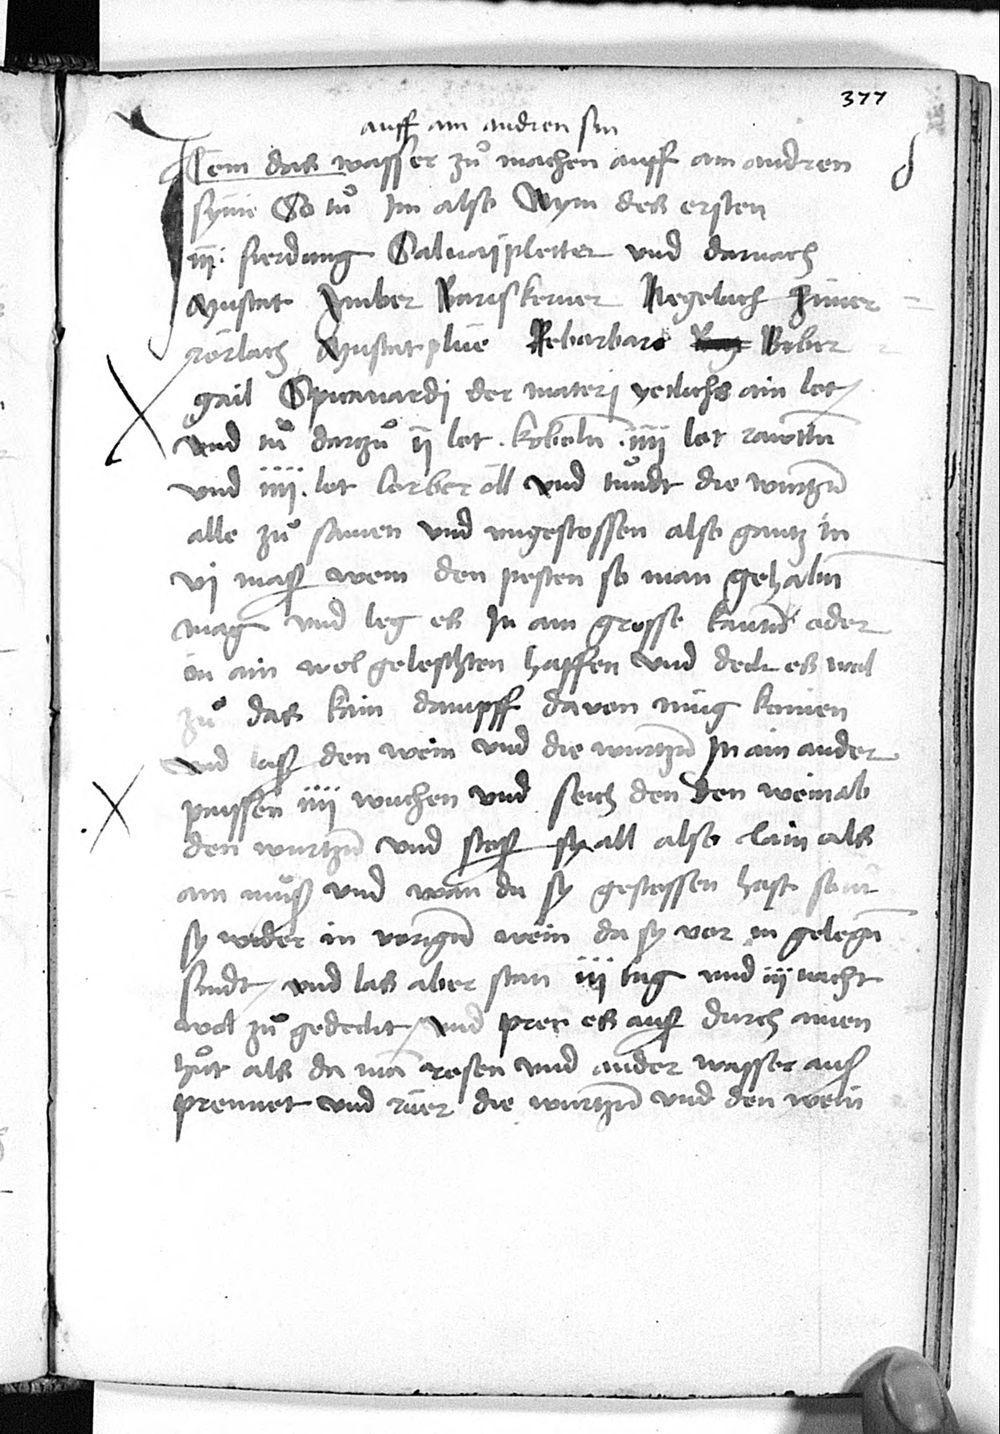 377
auff ain andren sin
Item das wasser zuͦ machen auff ain andren
synne So tuͦ im also Nym des ersten
iij fierdung Saluaÿ pletter und darnach
Muscat Imber Pariskerner Negelach zimer
rörlach Muscat plüe Rebarbara Biber
gail Spicanardj der materj yetlichs ain lot
und tuͦ darzuͦ ij lot kobeln iiij lot
und iiij lot lorber öll und tuͦndt die wurtzn
alle zuͦ samen und ungestossen also gantz in
vj mass wein den pesten so man gehabn
mag und leg es In ain grosse kantn oder
in ain wol geleschten haffen und deck es wol
zuͦ das kain dampff davon müg komen
und lass den wein und die wurtzn In ain ander
paissen iiij wuchen und seich den den wein ab
den wurtzn und stoss sy all also klain als
ain muͦss und wan du sy gestossen hast so tuͦ
sy wider in vorigen wein da sy vor in gelegn
sindt und las aber stan iij tag und iij nacht
wol zuͦ gedeckt und pren es auss durch ainen
huͦt als da man rosen und ander wasser auss
prennet und rüer die wurtzn und den wein